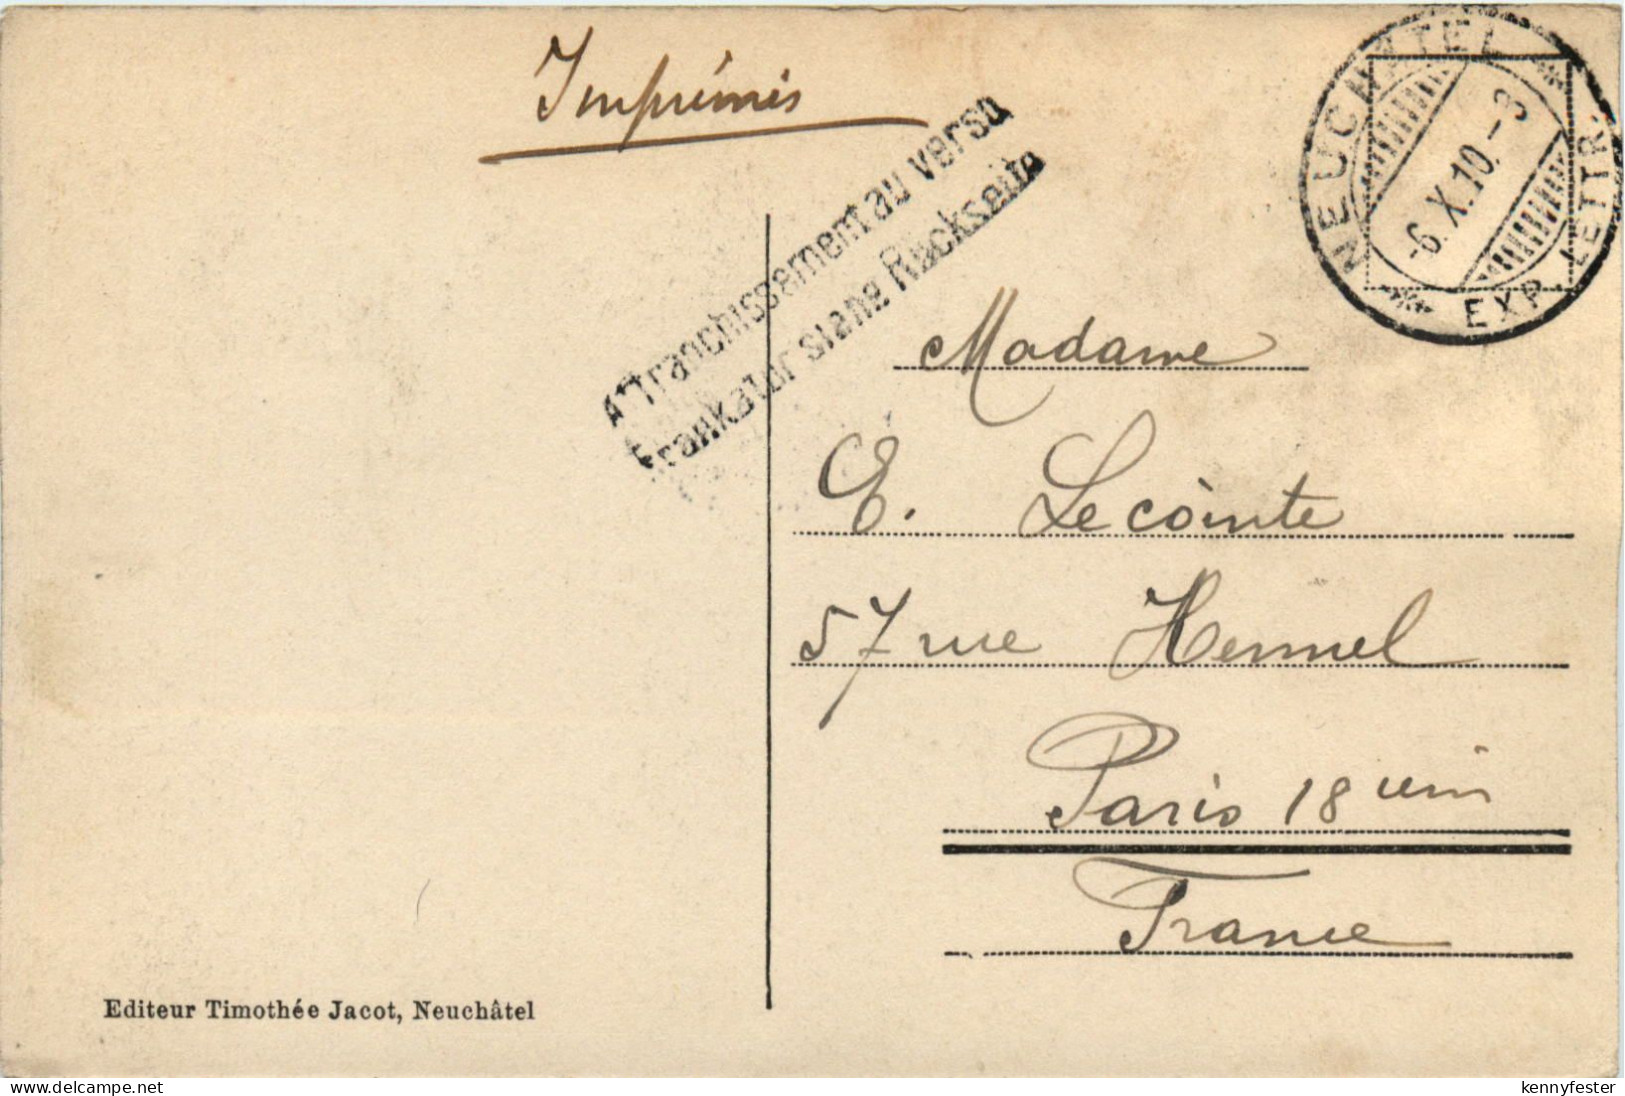 Imprimés
Affranchissement au verso
Frankatur siehe Rückseite
NEUCHATEL
-6.X.10.-3
EXP. LETTR.
Madame
E. Lecointe
57 rue Hermel
Paris 18 em
France
Editeur Timothée Jacot, Neuchâtel
www.delcampe.net
kennyfester